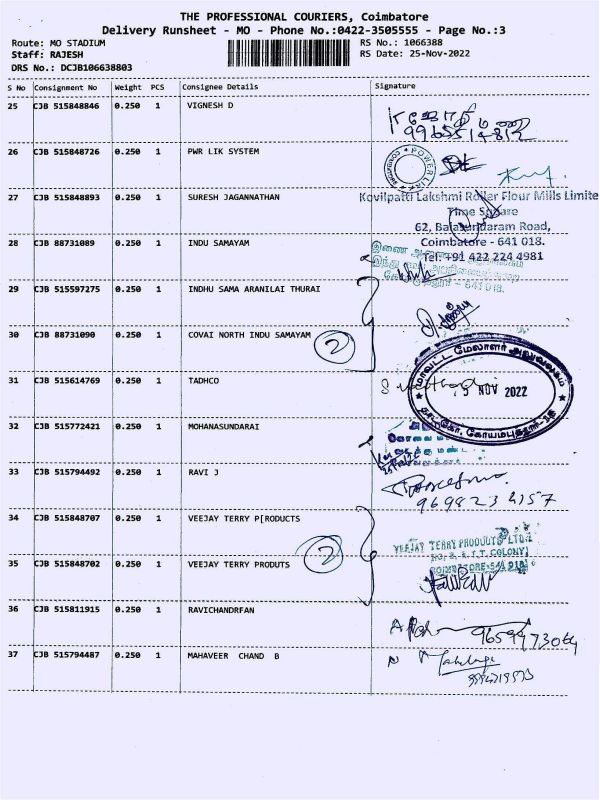 THE PROFESSIONAL COURIERS, Coimbatore
Delivery Runsheet - MO - Phone No.:0422-3505555 - Page No.:3
Route: MO STADIUM
RS No.: 1066388
Staff: RAJESH
RS Date: 25-Nov-2022
DRS No.: DCJB106638803
S No Consignment No Weight PCS Consignee Details Signature
25 CJB 515848846 0.250 1 VIGNESH D
26 CJB 515848726 0.250 1 PWR LIK SYSTEM
POWER LINK
27 CJB 515848893 0.250 1 SURESH JAGANNATHAN
Kovilpatti Lakshmi Roller Flour Mills Limite
Time Square
62, Balasundaram Road,
28 CJB 88731089 0.250 1 INDU SAMAYAM
Coimbatore - 641 018.
Tel: +91 422 224 4981
29 CJB 515597275 0.250 1 INDHU SAMA ARANILAI THURAI
30 CJB 88731090 0.250 1 COVAI NORTH INDU SAMAYAM
2
மாவட்ட மேலாளர் அலுவலகம்
31 CJB 515614769 0.250 1 TADHCO
NOV 2022
தாட்கோ, கோயமுத்தூர்-18
32 CJB 515772421 0.250 1 MOHANASUNDARAI
33 CJB 515794492 0.250 1 RAVI J
9698234157
34 CJB 515848707 0.250 1 VEEJAY TERRY P[RODUCTS
2
VEEJAY TERRY PRODUCTS LTD.,
35 CJB 515848702 0.250 1 VEEJAY TERRY PRODUTS
36 CJB 515811915 0.250 1 RAVICHANDRFAN
37 CJB 515794487 0.250 1 MAHAVEER CHAND B